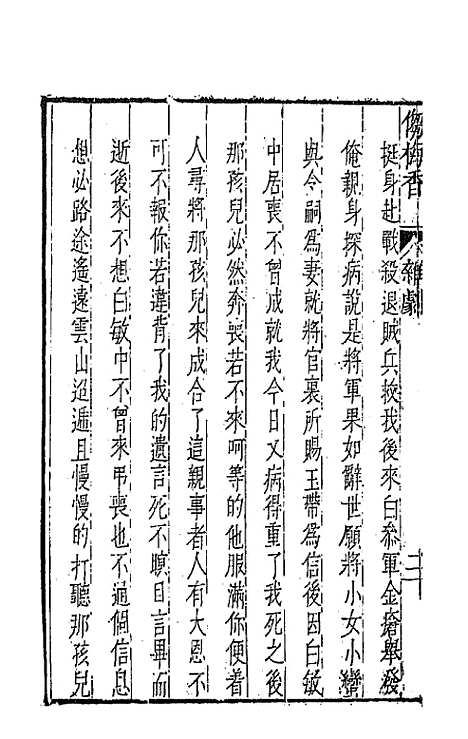 㑳梅香 雜劇 二
挺身赴戰殺退賊兵救我後來白叅軍金瘡舉發
俺親身探病說是將軍果如辭世願將小女小蠻
與令嗣爲妻就將官裏所賜玉帶爲信後因白敏
中居喪不曾成就我今日又病得重了我死之後
那孩兒必然奔喪若不來呵等的他服滿你便着
人尋將那孩兒來成合了這親事者人有大恩不
可不報你若違背了我的遺言死不瞑目言畢而
逝後來不想白敏中不曾來弔喪也不通個信息
想必路途遙遠雲山迢遞且慢慢的打聽那孩兒